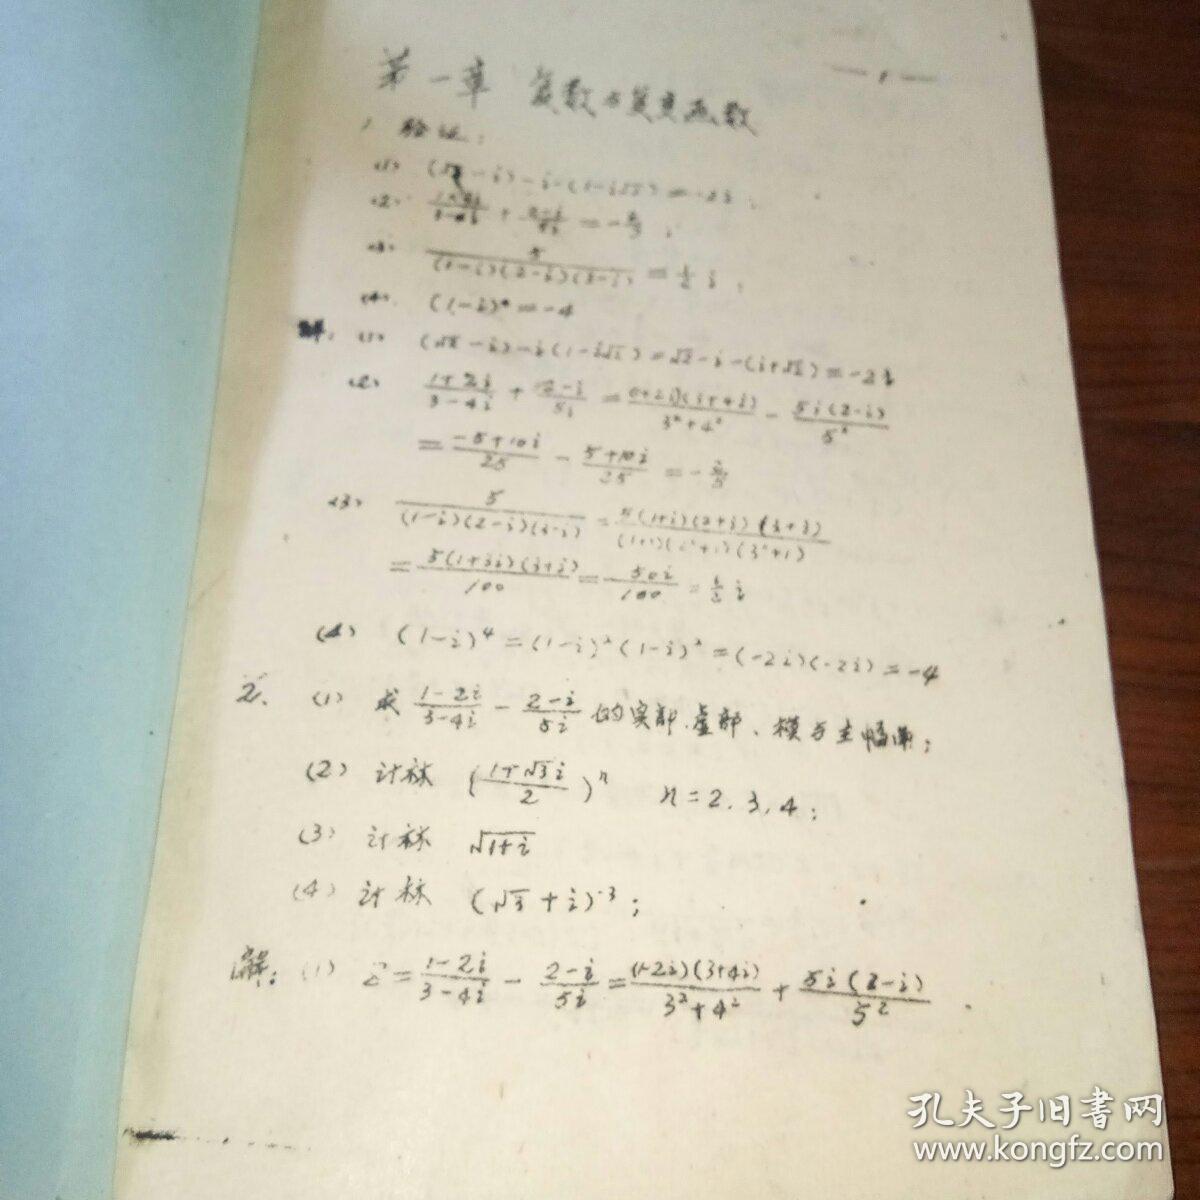 — 1 —
第一章 复数与复变函数
1 验证:
(1) (√2-i)-i(1-i√2)=-2i;
(2) (1+2i)/(3-4i) + (2-i)/(5i) = -2/5;
(3) 5/((1-i)(2-i)(3-i)) = 1/2 i;
(4) (1-i)⁴=-4
解: (1) (√2-i)-i(1-i√2)=√2-i-(i+√2)=-2i
(2) (1+2i)/(3-4i) + (2-i)/(5i) = (1+2i)(3+4i)/(3²+4²) - 5i(2-i)/5²
= (-5+10i)/25 - (5+10i)/25 = -2/5
(3) 5/((1-i)(2-i)(3-i)) = 5(1+i)(2+i)(3+i)/((1+1)(2²+1)(3²+1))
= 5(1+3i)(3+i)/100 = 50i/100 = 1/2 i
(4) (1-i)⁴=(1-i)²(1-i)²=(-2i)(-2i)=-4
2. (1) 求 (1-2i)/(3-4i) - (2-i)/(5i) 的实部、虚部、模与主幅角;
(2) 计标 ((1+√3i)/2)ⁿ n=2,3,4;
(3) 计标 √(1+i)
(4) 计标 (√3+i)⁻³;
解: (1) Z = (1-2i)/(3-4i) - (2-i)/(5i) = (1-2i)(3+4i)/(3²+4²) + 5i(2-i)/5²
孔夫子旧書网
www.kongfz.com